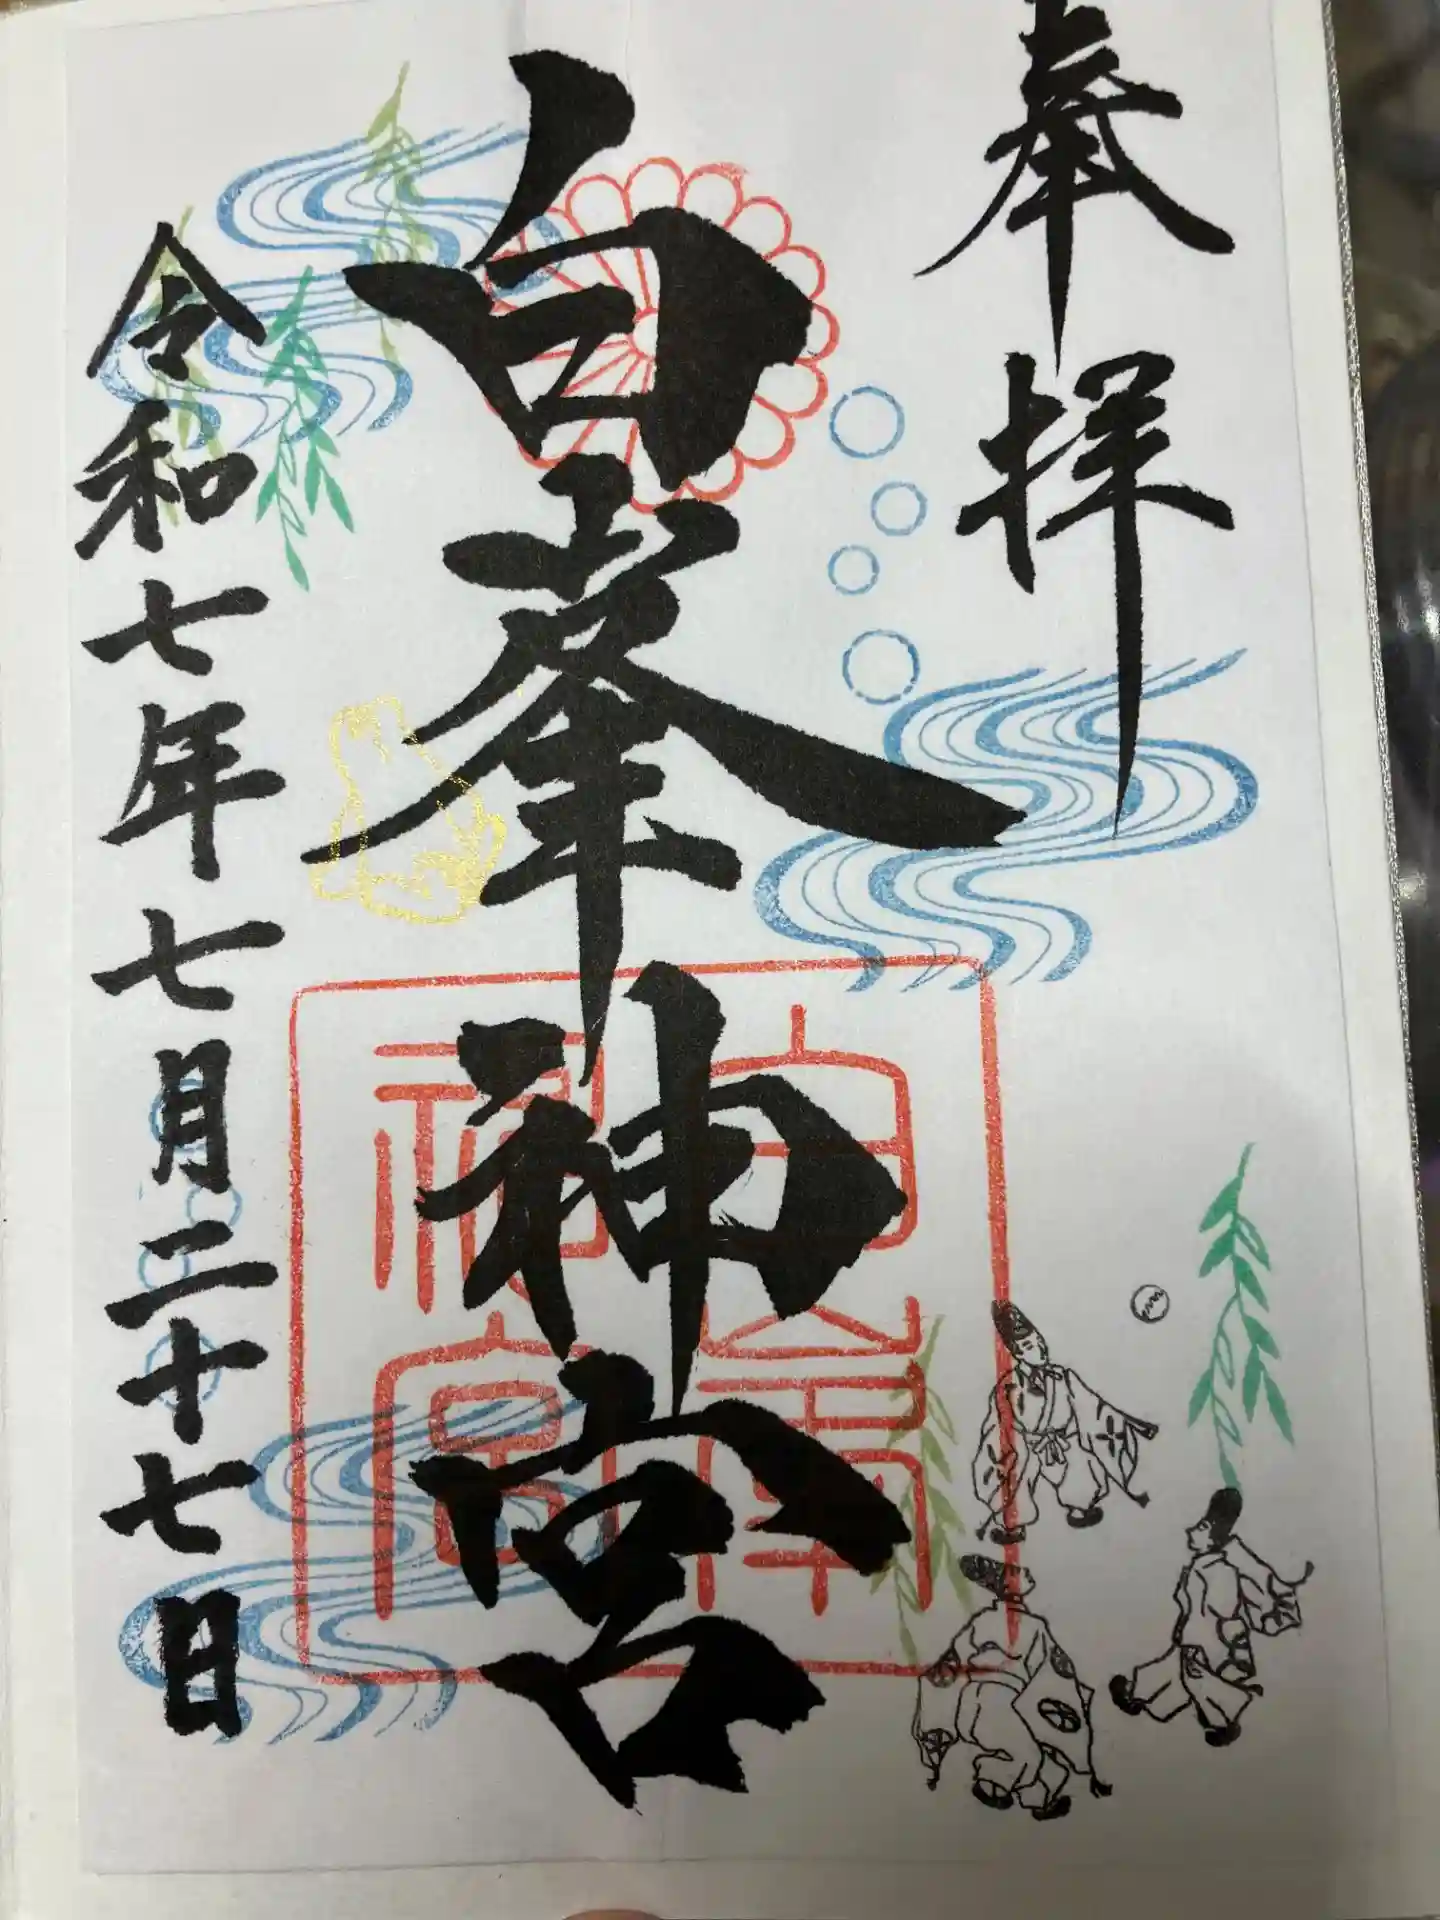 奉拝
白峯神宮
白峯神宮
令和七年七月二十七日